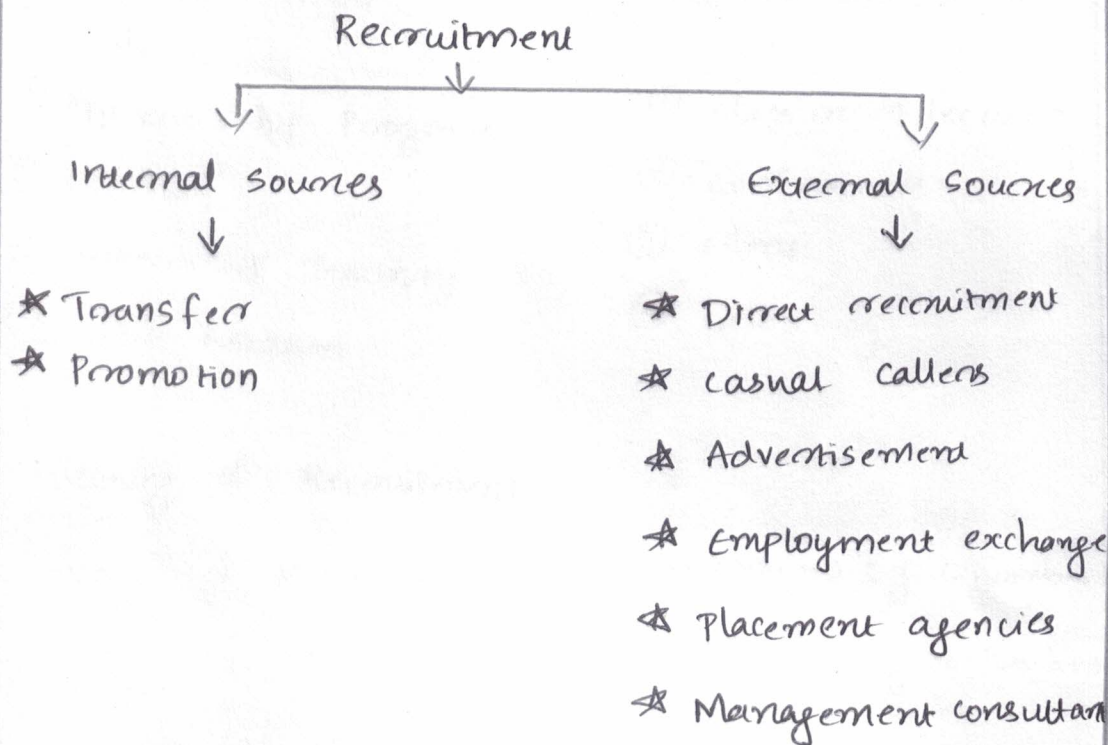 Recruitment
Internal sources
External sources
Transfer
Promotion
Direct recruitment
casual callers
Advertisement
Employment exchange
Placement agencies
Management consultant